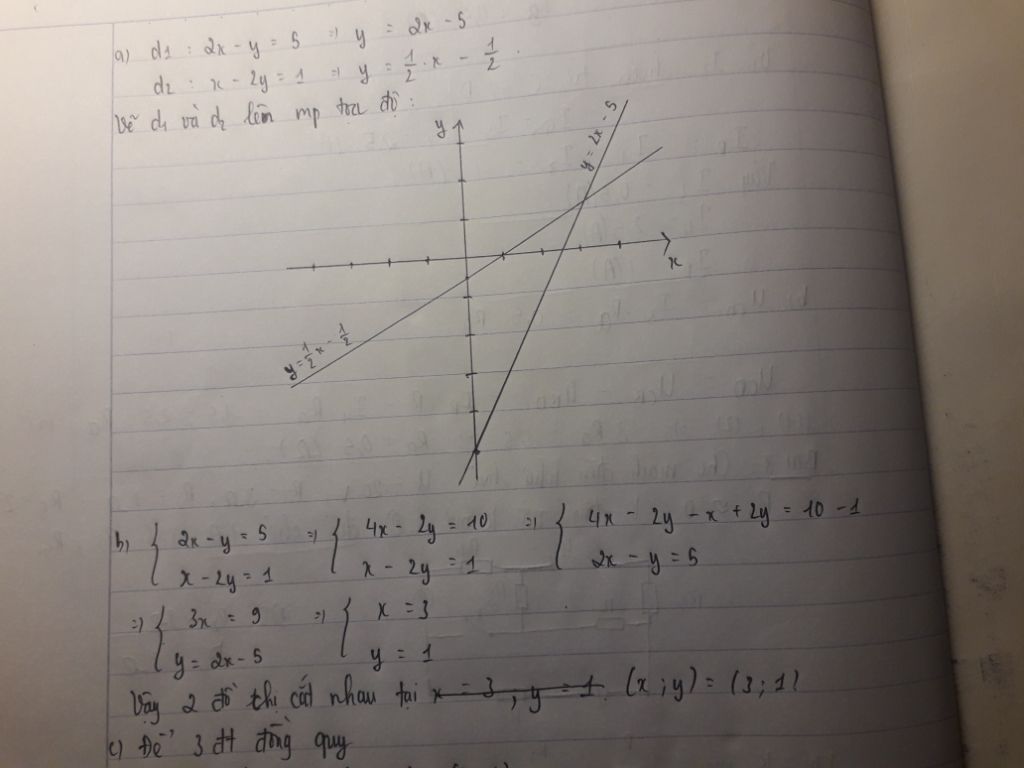 a) d1 : 2x - y = 5 => y = 2x - 5
d2 : x - 2y = 1 => y = 1/2 . x - 1/2 .
Vẽ d1 và d2 lên mp tọa độ :
y
y = 2x - 5
x
y = 1/2 x - 1/2
b) { 2x - y = 5 => { 4x - 2y = 10 => { 4x - 2y - x + 2y = 10 - 1
x - 2y = 1 x - 2y = 1 2x - y = 5
=> { 3x = 9 => { x = 3
y = 2x - 5 y = 1
Vậy 2 đồ thị cắt nhau tại x = 3 ; y = 1 (x ; y) = (3 ; 1)
c) Để 3 đt đồng quy